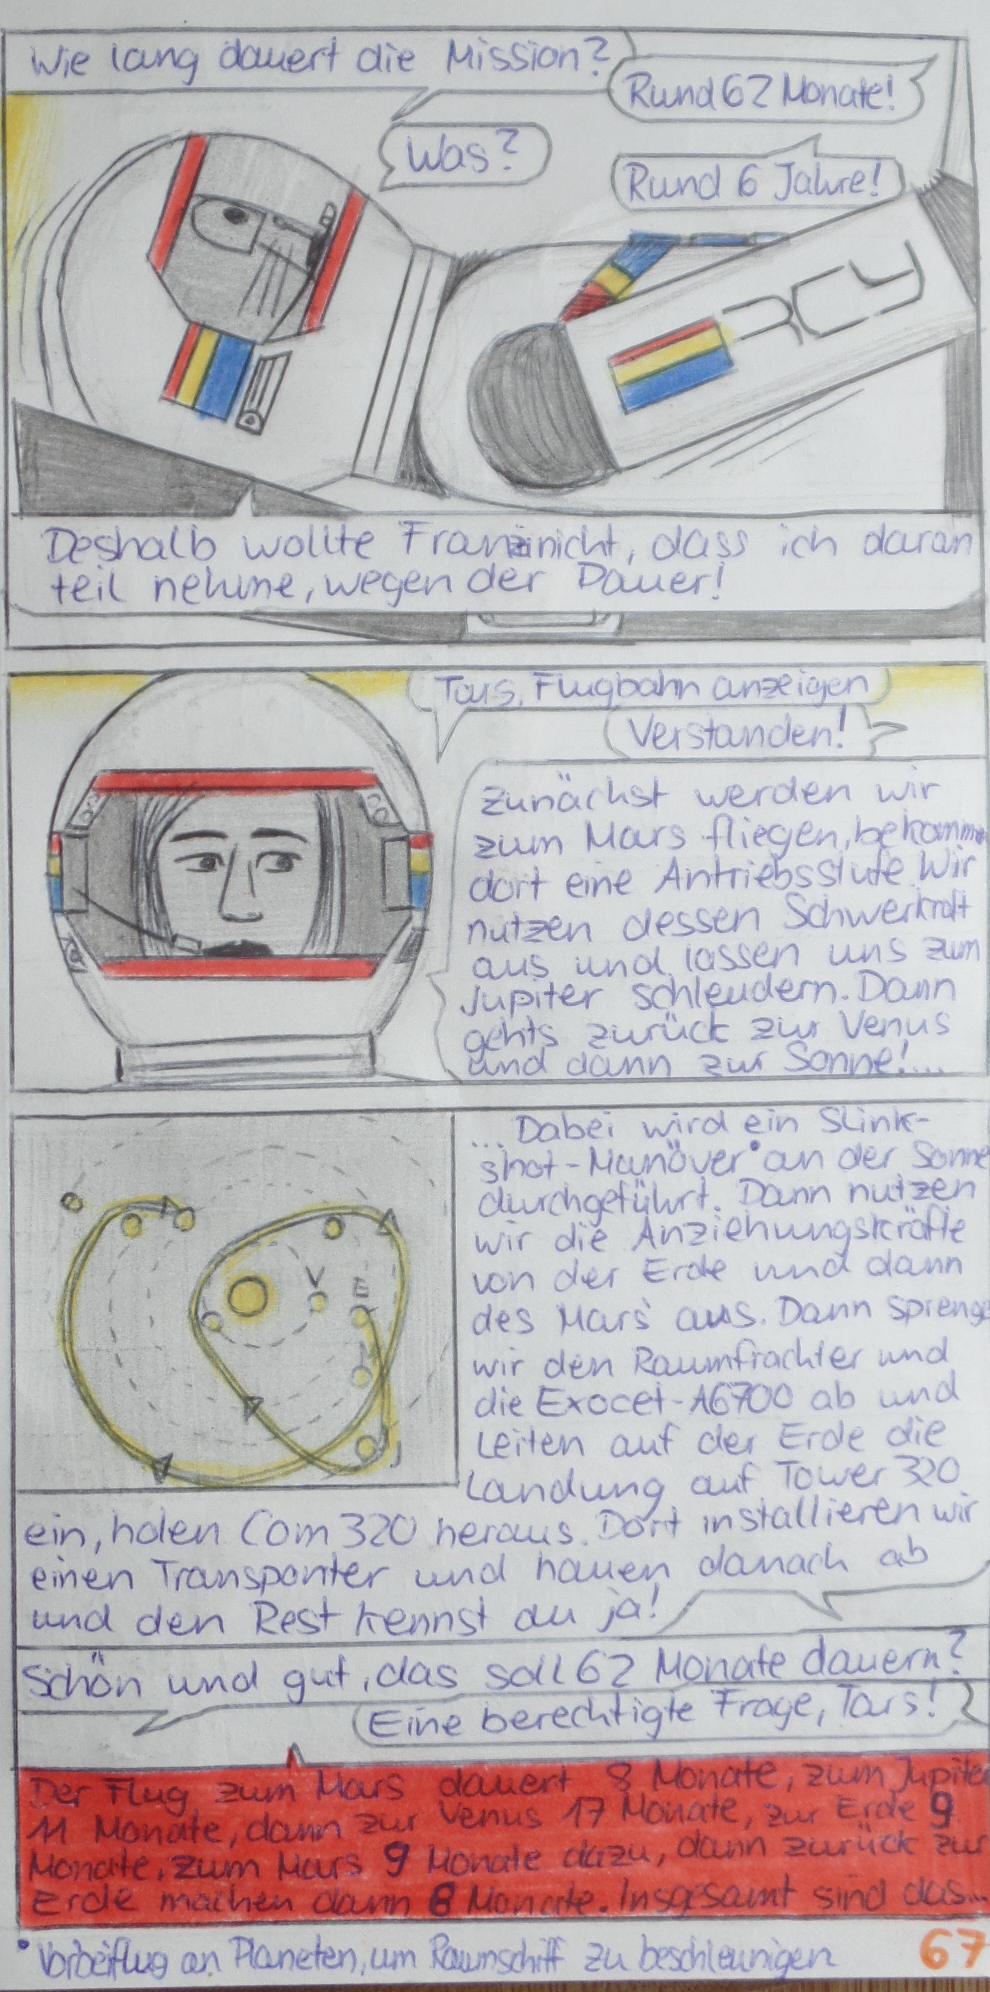 Wie lang dauert die Mission?
Rund 62 Monate!
Was?
Rund 6 Jahre!
RCY
Deshalb wollte Franzi nicht, dass ich daran
teil nehme, wegen der Dauer!
Tars, Flugbahn anzeigen
Verstanden!
Zunächst werden wir
zum Mars fliegen, bekommen
dort eine Antriebsstufe. Wir
nutzen dessen Schwerkraft
aus und lassen uns zum
Jupiter schleudern. Dann
gehts zurück zur Venus
und dann zur Sonne!...
... Dabei wird ein Slink-
shot-Manöver* an der Sonne
durchgeführt. Dann nutzen
wir die Anziehungskräfte
von der Erde und dann
des Mars aus. Dann sprenge
wir den Raumfrachter und
die Exocet-A6700 ab und
Leiten auf der Erde die
Landung auf Tower 320
ein, holen Com 320 heraus. Dort installieren wir
einen Transponter und hauen danach ab
und den Rest kennst du ja!
V
E
J
Schön und gut, das soll 62 Monate dauern?
Eine berechtigte Frage, Tars!
Der Flug zum Mars dauert 8 Monate, zum Jupiter
11 Monate, dann zur Venus 17 Monate, zur Erde 9
Monate, zum Mars 9 Monate dazu, dann zurück zur
Erde machen dann 8 Monate. Insgesamt sind das...
* Vorbeiflug an Planeten, um Raumschiff zu beschleunigen
67